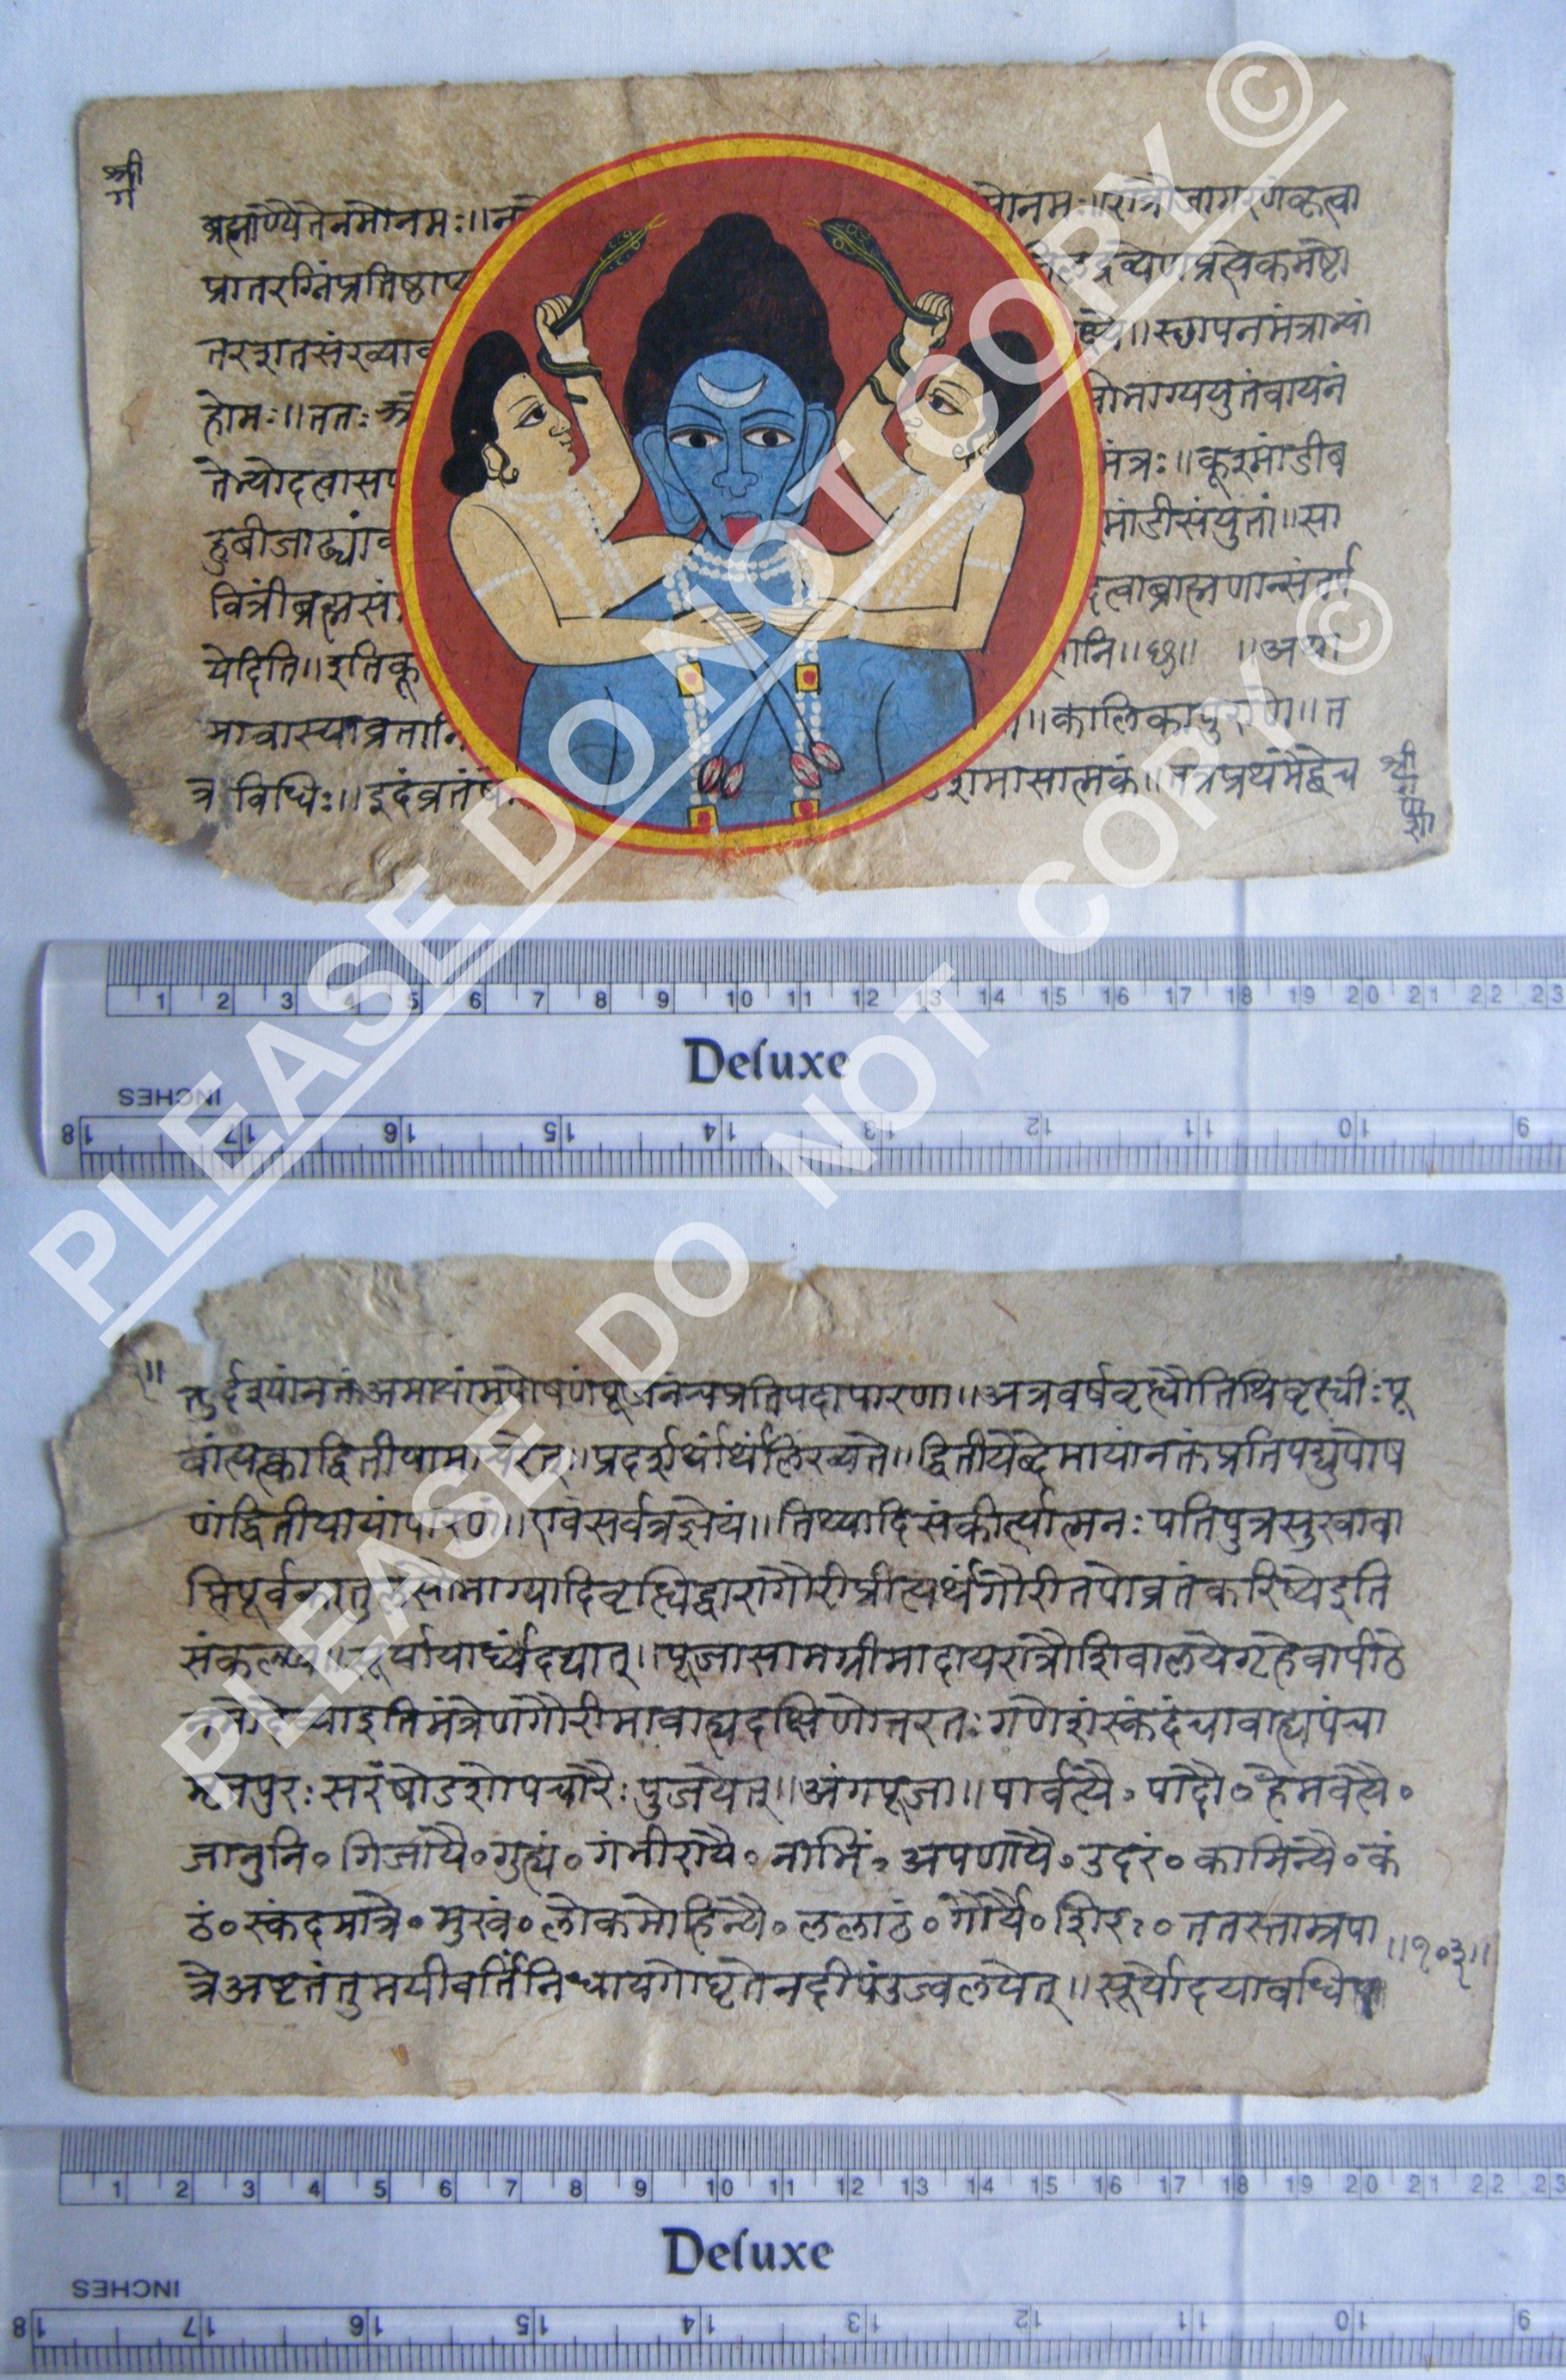 श्री
ग
ब्रह्माण्यैतेनमोनमः॥ नमोनमः॥रात्रौजागरणंकृत्वा
प्रातरग्निंप्रतिष्ठाप्य तिलद्रव्येणप्रत्येकमष्टो
तरशतसंख्या ॥स्थापनमंत्राभ्यां
होमः॥ततः सौभाग्ययुतंवायनं
तेभ्योदत्वास मंत्रः॥कूश्मांडीब
हुबीजाढ्यां मांडीसंयुतां॥सा
वित्रींब्रह्मसं दत्वाब्राह्मणान्संतर्प
येदिति॥इतिकू नि॥छ॥ ॥अथा
मावास्याव्रतानि ॥कालिकापुराणे॥त
त्र विधिः॥इदंव्रतंषो शमासात्मकं॥तत्रप्रथमेद्वेच
PLEASE DO NOT COPY ©
PLEASE DO NOT COPY ©
1 2 3 4 5 6 7 8 9 10 11 12 13 14 15 16 17 18 19 20 21 22 23
Deluxe
INCHES
18 17 16 15 14 13 12 11 10 9
॥
तुर्दश्यांनक्तंअमायांमुपोषणंपूजनंचप्रतिपदापारणा॥अत्रवर्षवृत्ध्यौतिथिवृत्धीःपू
र्वांत्यत्काद्वितीयामाचरेत्॥प्रदर्श्यर्थार्थंलिख्यते॥द्वितीयेब्देमायांनक्तंप्रतिपद्युपोष
णंद्वितीयायांपारणं॥एवंसर्वत्रज्ञेयं॥तिथ्यादिसंकीर्त्यात्मनःपतिपुत्रसुखावा
प्तिपूर्वकातुलसौभाग्यादिवृत्धिद्वारागौरीप्रीत्यर्थंगौरीतपोव्रतंकरिष्येइति
संकल्प्य॥सूर्यायार्घ्यंदद्यात्॥पूजासामग्रीमादायरात्रौशिवालयेगृहेवापीठे
नमोदेव्याइतिमंत्रेणगौरीमावाह्यदक्षिणोत्तरतःगणेशंस्कंदंचावाह्यपंचा
मृतपुरःसरंषोडशोपचारैःपुजयेत्॥अंगपूजा॥पार्वत्यै॰पादौ॰हैमवत्यै॰
जानुनि॰गिर्जायै॰गुह्यं॰गंभीरायै॰नाभिं॰अपर्णायै॰उदरं॰कामिन्यै॰कं
ठं॰स्कंदमात्रे॰मुखं॰लोकमोहिन्यै॰ललाटं॰गौर्यै॰शिरः॰ततस्ताम्रपा
त्रेअष्टतंतुमयीवर्तिंनिधायगोघृतेनदीपंउज्वलयेत्॥सूर्योदयावधिप
॥१०३॥
1 2 3 4 5 6 7 8 9 10 11 12 13 14 15 16 17 18 19 20 21 22 23
Deluxe
INCHES
18 17 16 15 14 13 12 11 10 9